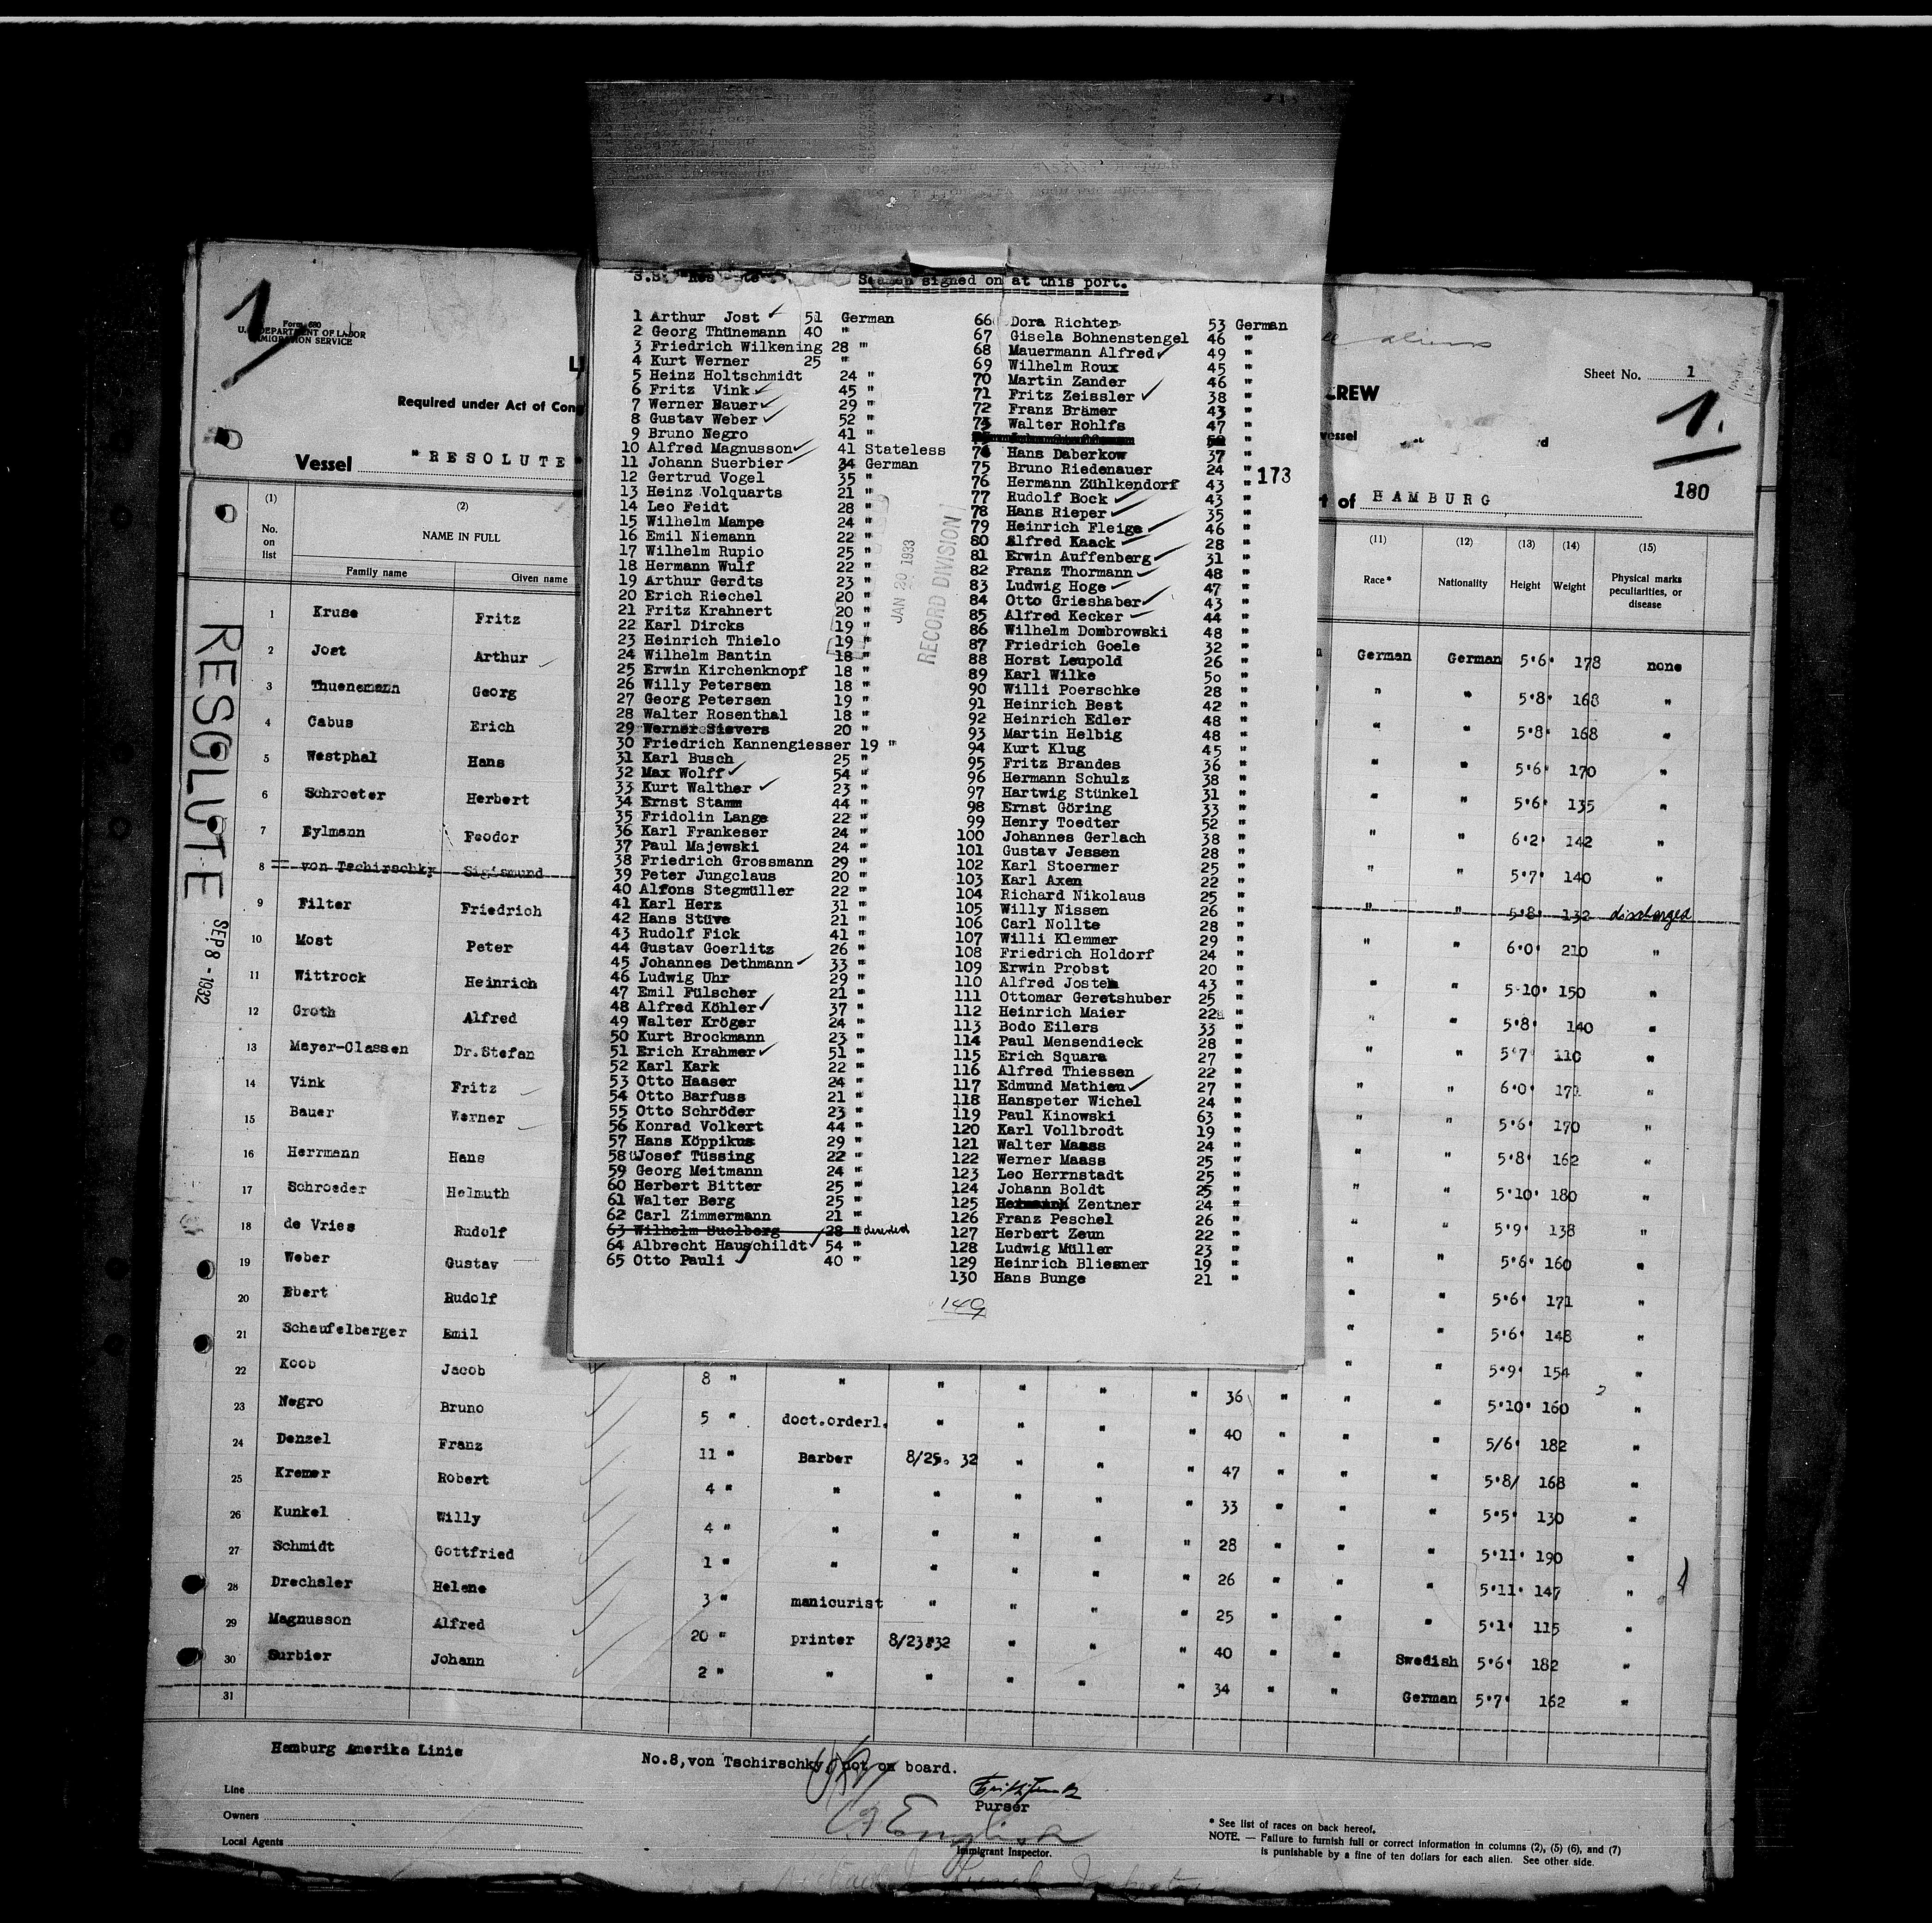 1
Form 680
U.S. DEPARTMENT OF LABOR
IMMIGRATION SERVICE
Required under Act of Cong
Vessel "RESOLUTE"
(1) (2)
No. on list
NAME IN FULL
Family name Given name
RESOLUTE
SEP 8 - 1932
1 Kruse Fritz
2 Jost Arthur
3 Thuenemann Georg
4 Cabus Erich
5 Westphal Hans
6 Schroeter Herbert
7 Eylmann Feodor
8 von Tschirschky Sigismund
9 Filter Friedrich
10 Most Peter
11 Wittrock Heinrich
12 Groth Alfred
13 Meyer-Classen Dr.Stefan
14 Vink Fritz
15 Bauer Werner
16 Herrmann Hans
17 Schroeder Helmuth
18 de Vries Rudolf
19 Weber Gustav
20 Ebert Rudolf
21 Schaufelberger Emil
22 Koob Jacob
23 Negro Bruno
24 Denzel Franz
25 Kremer Robert
26 Kunkel Willy
27 Schmidt Gottfried
28 Drechsler Helene
29 Magnusson Alfred
30 Surbier Johann
31
S.S. Seamen signed on at this port.
1 Arthur Jost ✓ 51 German
2 Georg Thünemann 40 "
3 Friedrich Wilkening 28 "
4 Kurt Werner 25 "
5 Heinz Holtschmidt 24 "
6 Fritz Vink ✓ 45 "
7 Werner Bauer ✓ 29 "
8 Gustav Weber ✓ 52 "
9 Bruno Negro 41 "
10 Alfred Magnusson ✓ 41 Stateless
11 Johann Suerbier ✓ 34 German
12 Gertrud Vogel 35 "
13 Heinz Volquarts 21 "
14 Leo Feidt 28 "
15 Wilhelm Mampe 24 "
16 Emil Niemann 22 "
17 Wilhelm Rupio 25 "
18 Hermann Wulf 22 "
19 Arthur Gerdts 23 "
20 Erich Riechel 20 "
21 Fritz Krahnert 20 "
22 Karl Dircks 19 "
23 Heinrich Thielo 19 "
24 Wilhelm Bantin 18 "
25 Erwin Kirchenknopf 18 "
26 Willy Petersen 18 "
27 Georg Petersen 19 "
28 Walter Rosenthal 18 "
29 Werner Sievers 20 "
30 Friedrich Kannengiesser 19 "
31 Karl Busch 25 "
32 Max Wolff ✓ 54 "
33 Kurt Walther ✓ 23 "
34 Ernst Stamm 44 "
35 Fridolin Lange 22 "
36 Karl Frankeser 24 "
37 Paul Majewski 24 "
38 Friedrich Grossmann 29 "
39 Peter Jungclaus 20 "
40 Alfons Stegmüller 22 "
41 Karl Herz 31 "
42 Hans Stüve 21 "
43 Rudolf Fick 41 "
44 Gustav Goerlitz 26 "
45 Johannes Dethmann ✓ 33 "
46 Ludwig Uhr 29 "
47 Emil Fülscher 21 "
48 Alfred Köhler ✓ 37 "
49 Walter Kröger 24 "
50 Kurt Brockmann 23 "
51 Erich Krahmer ✓ 51 "
52 Karl Kark 22 "
53 Otto Haaser 24 "
54 Otto Barfuss 21 "
55 Otto Schröder 23 "
56 Konrad Volkert 44 "
57 Hans Köppikus 29 "
58 Josef Tüssing 22 "
59 Georg Meitmann 24 "
60 Herbert Bitter 25 "
61 Walter Berg 25 "
62 Carl Zimmermann 21 "
63 Wilhelm Suelberg 28 " deserted
64 Albrecht Hauschildt ✓ 54 "
65 Otto Pauli ✓ 40 "
JAN 20 1933
RECORD DIVISION
66 Dora Richter 53 German
67 Gisela Bohnenstengel 46 "
68 Mauermann Alfred ✓ 49 "
69 Wilhelm Roux 45 "
70 Martin Zander 46 "
71 Fritz Zeissler ✓ 38 "
72 Franz Brämer 43 "
73 Walter Rohlfs 47 "
74 Hans Daberkow 37 "
75 Bruno Riedenauer 24 "
76 Hermann Zühlkendorf 43 "
77 Rudolf Bock ✓ 43 "
78 Hans Rieper ✓ 35 "
79 Heinrich Fleige ✓ 46 "
80 Alfred Kaack ✓ 28 "
81 Erwin Auffenberg ✓ 31 "
82 Franz Thormann ✓ 48 "
83 Ludwig Hoge ✓ 47 "
84 Otto Grieshaber ✓ 43 "
85 Alfred Kecker ✓ 44 "
86 Wilhelm Dombrowski 48 "
87 Friedrich Goele 32 "
88 Horst Leupold 26 "
89 Karl Wilke 50 "
90 Willi Poerschke 28 "
91 Heinrich Best 42 "
92 Heinrich Edler 48 "
93 Martin Helbig 48 "
94 Kurt Klug 45 "
95 Fritz Brandes 36 "
96 Hermann Schulz 38 "
97 Hartwig Stünkel 31 "
98 Ernst Göring 33 "
99 Henry Toedter 52 "
100 Johannes Gerlach 38 "
101 Gustav Jessen 28 "
102 Karl Stoermer 25 "
103 Karl Axen 22 "
104 Richard Nikolaus 25 "
105 Willy Nissen 26 "
106 Carl Nollte 28 "
107 Willi Klemmer 29 "
108 Friedrich Holdorf 24 "
109 Erwin Probst 20 "
110 Alfred Josten 43 "
111 Ottomar Geretshuber 25 "
112 Heinrich Maier 22 "
113 Bodo Eilers 33 "
114 Paul Mensendieck 28 "
115 Erich Squara 27 "
116 Alfred Thiessen 22 "
117 Edmund Mathieu ✓ 27 "
118 Hanspeter Wichel 24 "
119 Paul Kinowski 63 "
120 Karl Vollbrodt 19 "
121 Walter Maass 24 "
122 Werner Maass 25 "
123 Leo Herrnstadt 25 "
124 Johann Boldt 25 "
125 Zentner 24 "
126 Franz Peschel 26 "
127 Herbert Zeun 22 "
128 Ludwig Müller 23 "
129 Heinrich Bliesner 19 "
130 Hans Bunge 21 "
149
173
aliens
Sheet No. 1
CREW
1.
vessel
180
t of HAMBURG
(11) (12) (13) (14) (15)
Race* Nationality Height Weight Physical marks peculiarities, or disease
German German 5'6' 178 none
" " 5'8' 168 "
" " 5'8' 168 "
" " 5'6' 170 "
" " 5'6' 135 "
" " 6'2' 142 "
" " 5'7' 140 "
" " 5'8' 132 discharged
" " 6'0' 210 "
" " 5'10' 150 "
" " 5'8' 140 "
" " 5'7' 110 "
" " 6'0' 171 "
" " 5'6' 170 "
" " 5'8' 162 "
" " 5'10' 180 "
" " 5'9' 138 "
" " 5'6' 160 "
" " 5'6' 171 "
" " 5'6' 148 "
8 " " " " " " 36 " " " 5'9' 154 "
5 " doct.orderl. " " " " 40 " " " 5'10' 160 "
11 " Barber 8/25. 32 " " " 47 " " " 5/6' 182 "
4 " " " " " " 33 " " " 5'8/ 168 "
4 " " " " " " 28 " " " 5'5' 130 "
1 " " " " " " 26 " " " 5'11' 190 "
3 " manicurist " " " " 25 " " " 5'11' 147 "
20 " printer 8/23'32 " " " 40 " " " 5'1' 115 "
2 " " " " " " 34 " " Swedish 5'6' 182 "
German 5'7' 162 "
Hamburg Amerika Linie
No.8,von Tschirschky, not on board.
Line
Owners
Local Agents
Purser
English
Immigrant Inspector.
* See list of races on back hereof.
NOTE. — Failure to furnish full or correct information in columns (2), (5) (6), and (7)
is punishable by a fine of ten dollars for each alien. See other side.